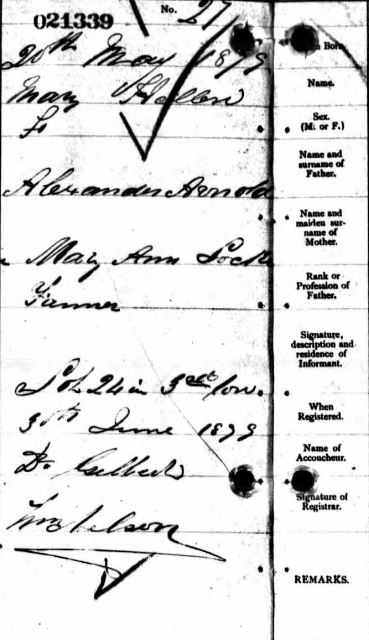 021339
No. 27
20th May 1879
Born.
Mary Hellen
Name.
F
Sex.
(M. or F.)
Alexander Arnold
Name and
surname of
Father.
Mary Ann Lock
Name and
maiden sur-
name of
Mother.
Farmer
Rank or
Profession of
Father.
Signature,
description and
residence of
Informant.
Lot 24 in 3rd Con.
30th June 1879
When
Registered.
Dr Gilbert
Name of
Accoucheur.
Signature of
Registrar.
REMARKS.